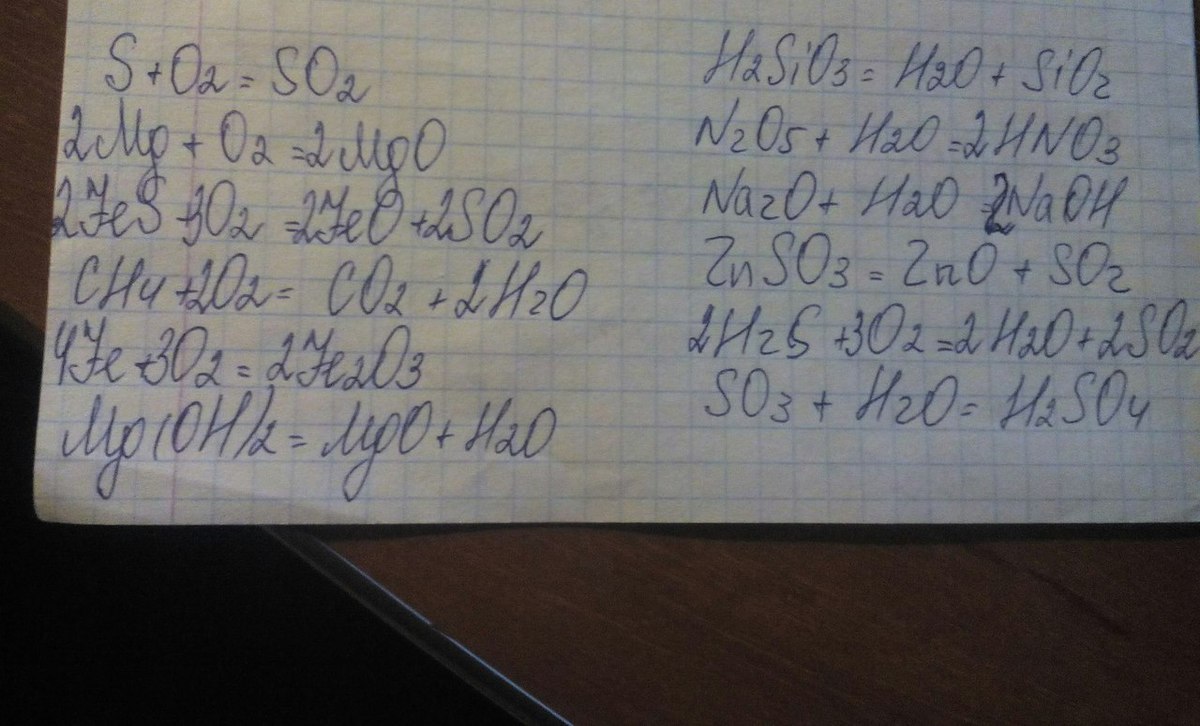 S + O2 = SO2
2Mg + O2 = 2MgO
2FeS + 3O2 = 2FeO + 2SO2
CH4 + 2O2 = CO2 + 2H2O
4Fe + 3O2 = 2Fe2O3
Mg(OH)2 = MgO + H2O
H2SiO3 = H2O + SiO2
N2O5 + H2O = 2HNO3
Na2O + H2O = 2NaOH
ZnSO3 = ZnO + SO2
2H2S + 3O2 = 2H2O + 2SO2
SO3 + H2O = H2SO4